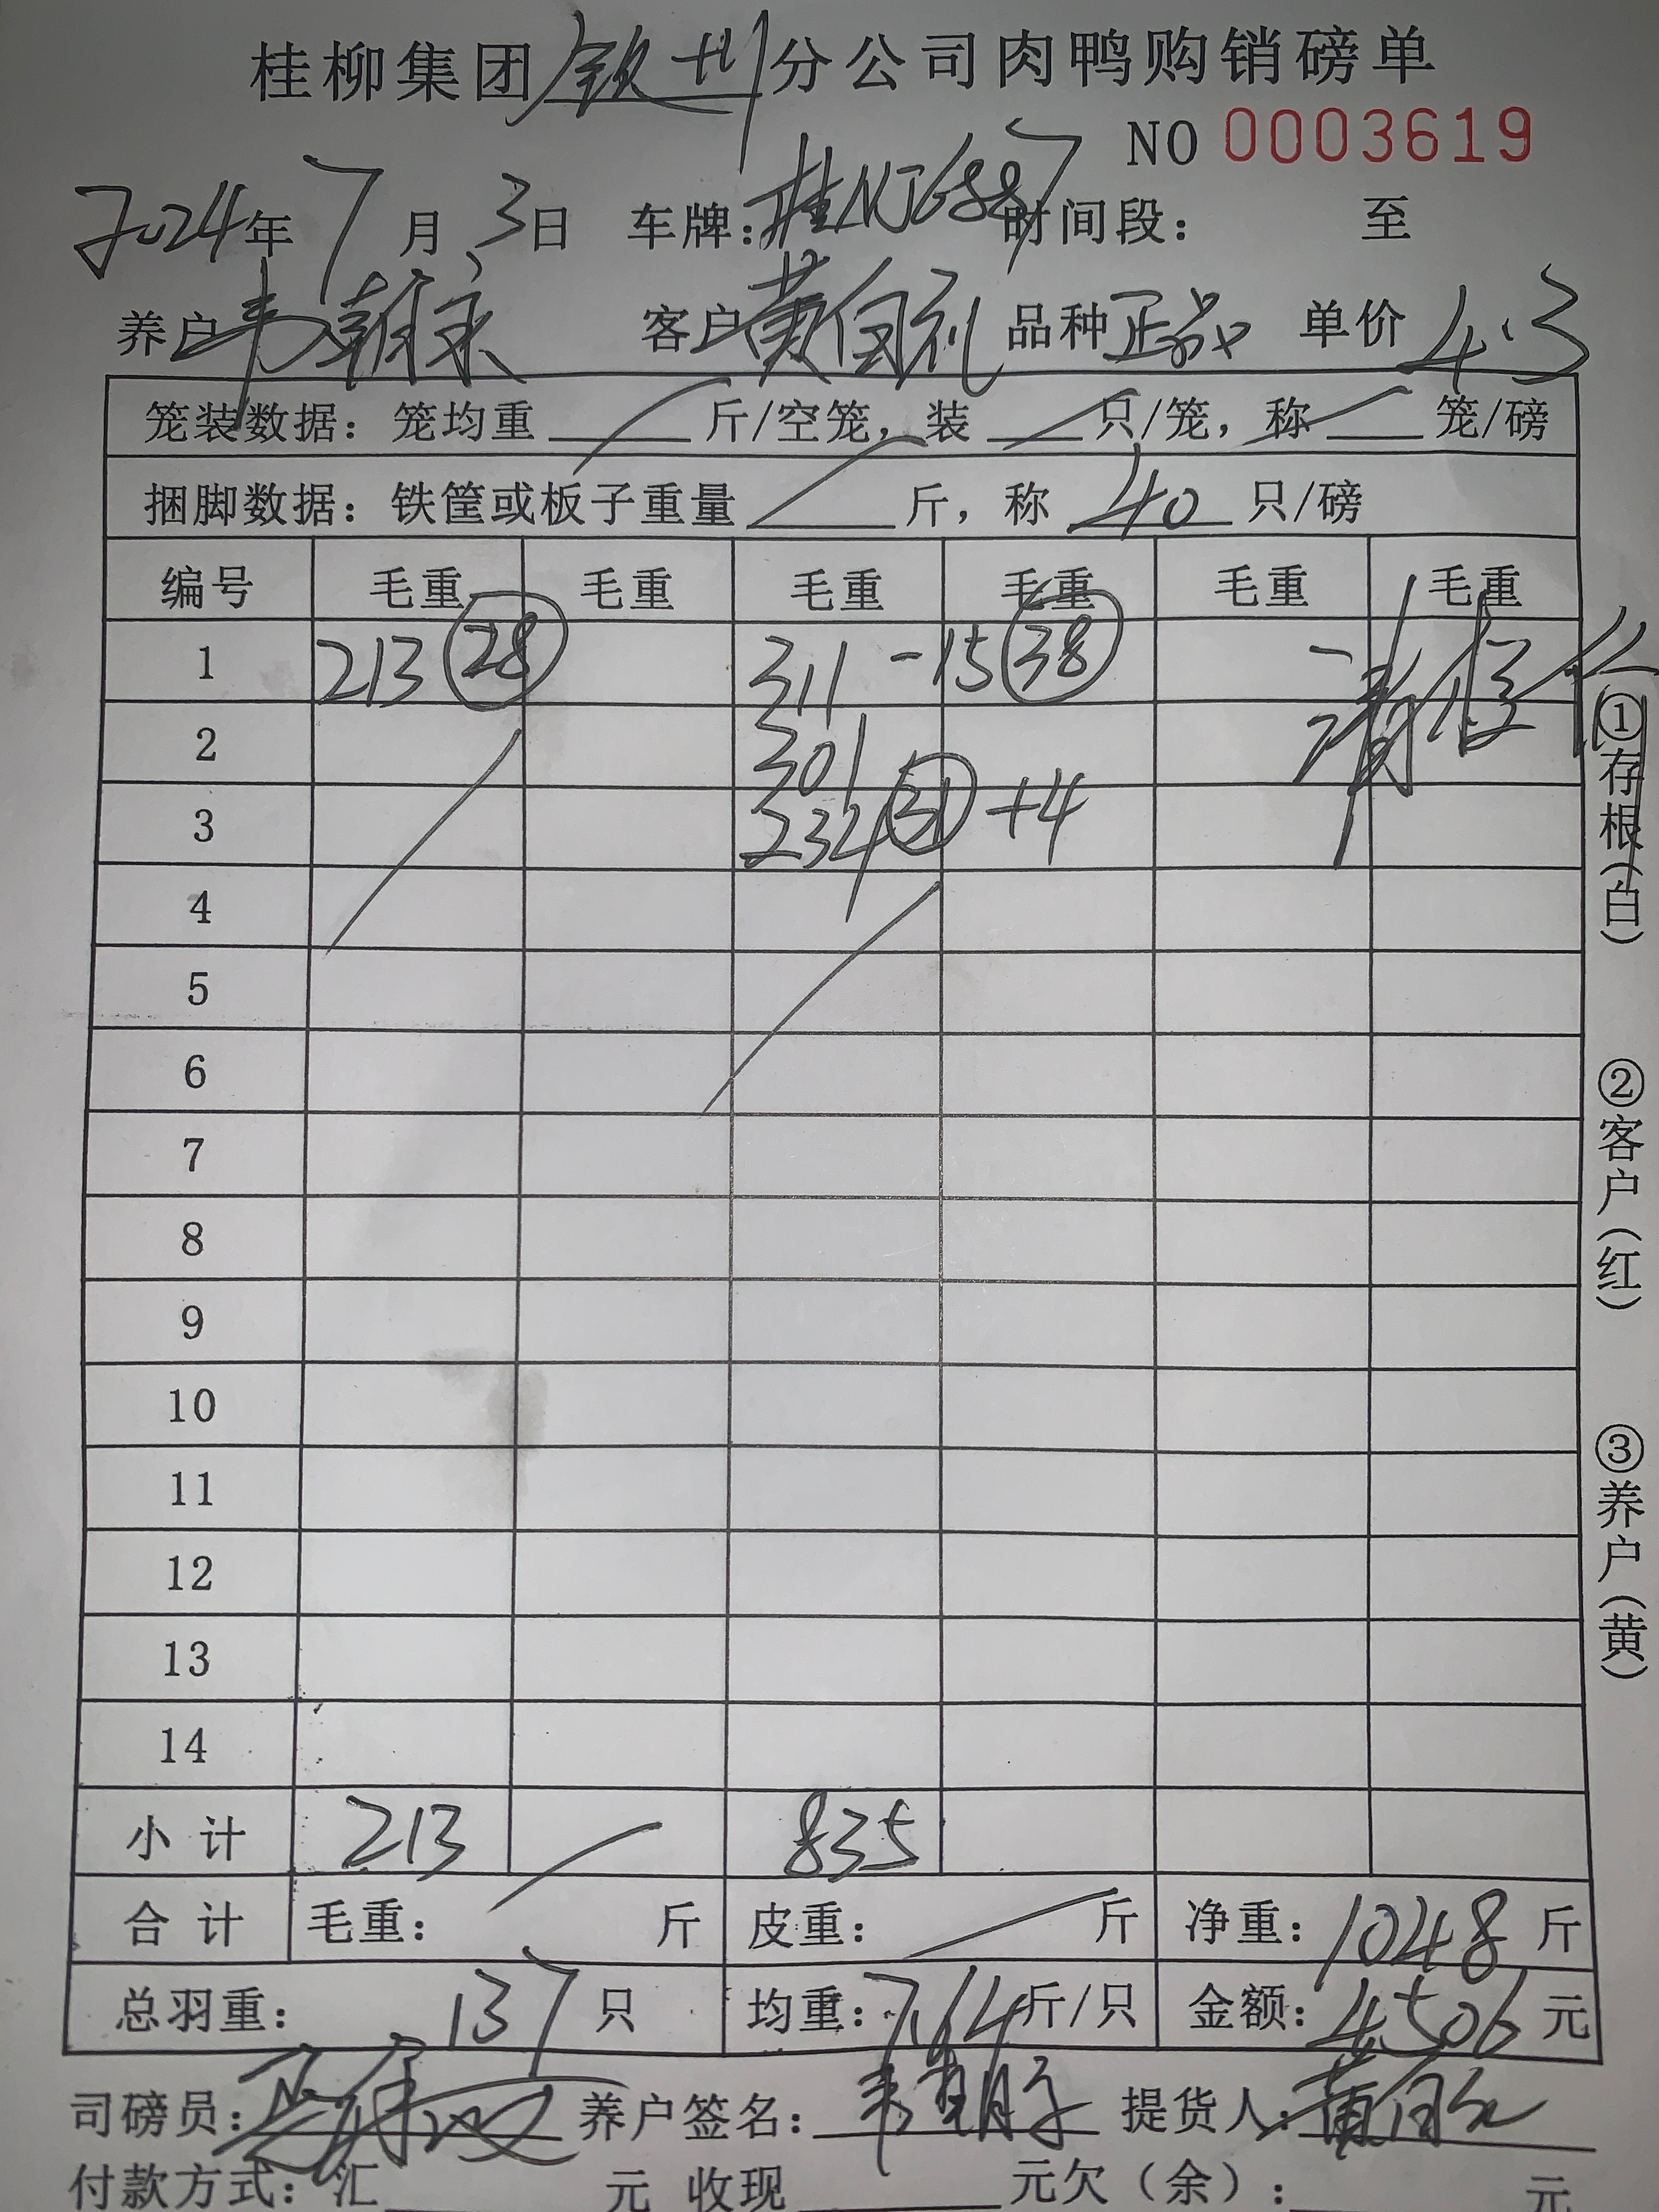 桂柳集团钦州分公司肉鸭购销磅单
NO 0003619
2024年7月3日 车牌:桂NJ6887 时间段: 至
养户韦朝 客户黄 礼 品种正品 单价4.3
笼装数据: 笼均重 斤/空笼, 装 只/笼, 称 笼/磅
捆脚数据: 铁筐或板子重量 斤, 称 40 只/磅
编号 毛重 毛重 毛重 毛重 毛重 毛重
1 213 28 311 -15 38
2 301
3 234 31 +4
4
5
6
7
8
9
10
11
12
13
14
小计 213 835
合计 毛重: 斤 皮重: 斤 净重: 1048 斤
总羽重: 137 只 均重: 7.64 斤/只 金额: 4506 元
司磅员: 养户签名: 韦朝 提货人: 黄
付款方式: 汇 元 收现 元欠(余): 元
①存根(白) ②客户(红) ③养户(黄)